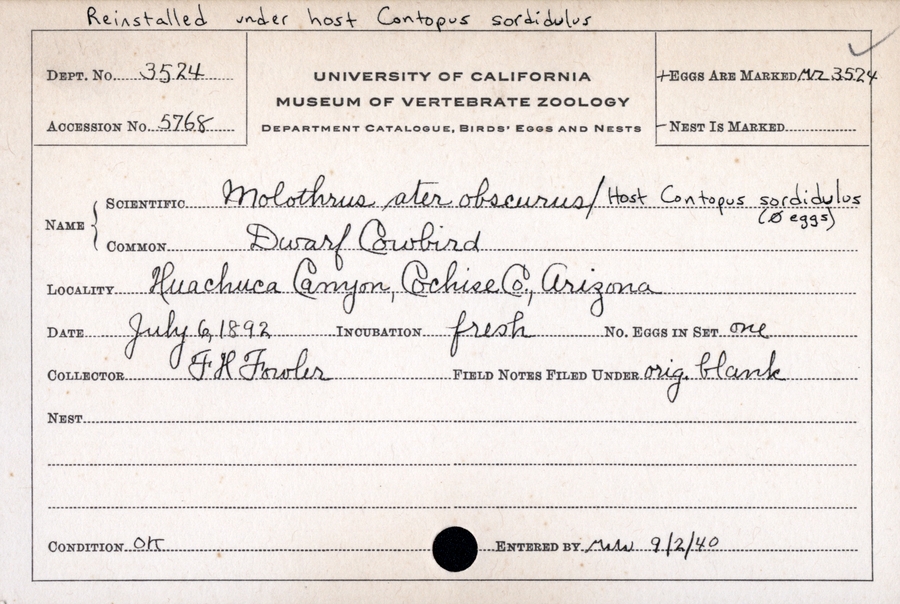 Reinstalled under host Contopus sordidulus
DEPT. NO. 3524
ACCESSION NO. 5768
UNIVERSITY OF CALIFORNIA
MUSEUM OF VERTEBRATE ZOOLOGY
DEPARTMENT CATALOGUE, BIRDS' EGGS AND NESTS
+EGGS ARE MARKED 3524
-NEST IS MARKED
NAME
SCIENTIFIC Molothrus ater obscurus/ Host Contopus sordidulus
(Ø eggs)
COMMON Dwarf Cowbird
LOCALITY Huachuca Canyon, Cochise Co., Arizona
DATE July 6, 1892 INCUBATION fresh NO. EGGS IN SET one
COLLECTOR F H Fowler FIELD NOTES FILED UNDER orig. blank
NEST
CONDITION OK ENTERED BY 9/2/40